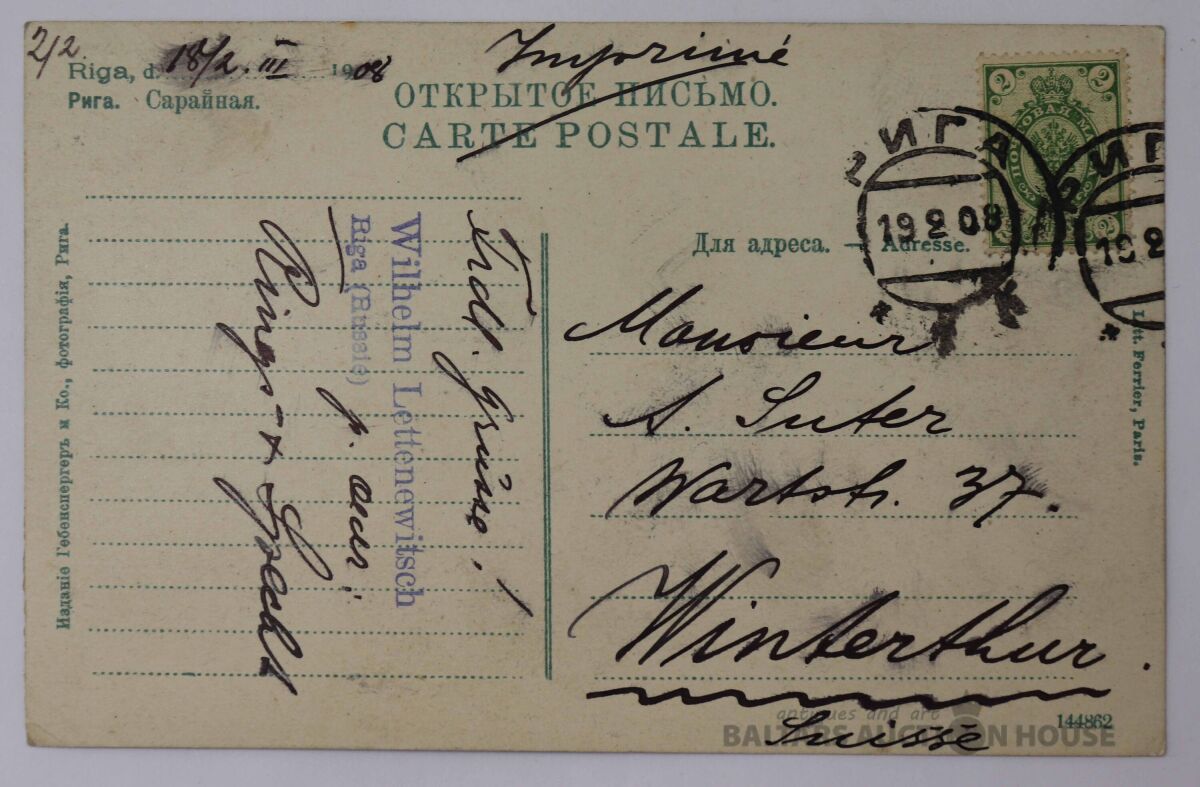 2/2.
Imprimé
Riga, d. 18/2. III 1908
Рига. Сарайная.
ОТКРЫТОЕ ПИСЬМО.
CARTE POSTALE.
2 2
ПОЧТОВАЯ МА
РИГА
19 2 08
РИГ
19 2
Для адреса. — Adresse.
Monsieur
A. Suter
Wartstr. 37.
Winterthur.
Suisse
Frdl. Grüsse!
Wilhelm Lettenewitsch
Riga (Russie)
p. adr:
Издание Гебенспергеръ и Ко., фотографія, Рига.
Lett. Ferrier, Paris.
144862
antiques and art
BALTARS AUCTION HOUSE